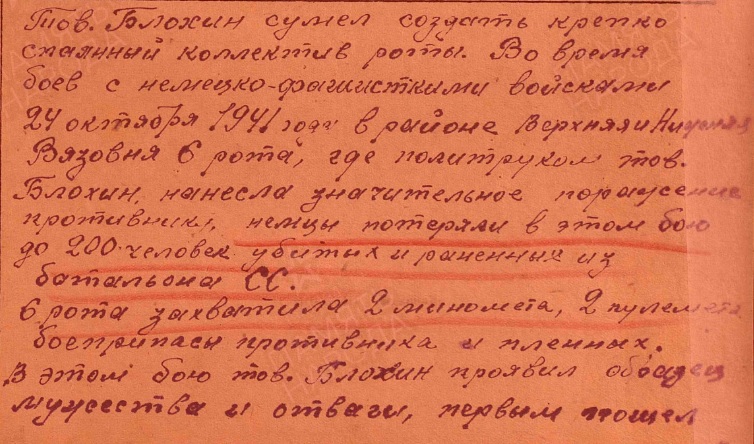 Тов. Блохин сумел создать крепко
спаянный коллектив роты. Во время
боев с немецко-фашисткими войсками
24 октября 1941 года в районе Верхняя и Нижняя
Вязовня 6 рота, где политруком тов.
Блохин, нанесла значительное поражение
противнику, немцы потеряли в этом бою
до 200 человек убитых и раненных из
батальона СС.
6 рота захватила 2 миномета, 2 пулемета
боеприпасы противника и пленных.
В этом бою тов. Блохин проявил образец
мужества и отваги, первым пошел